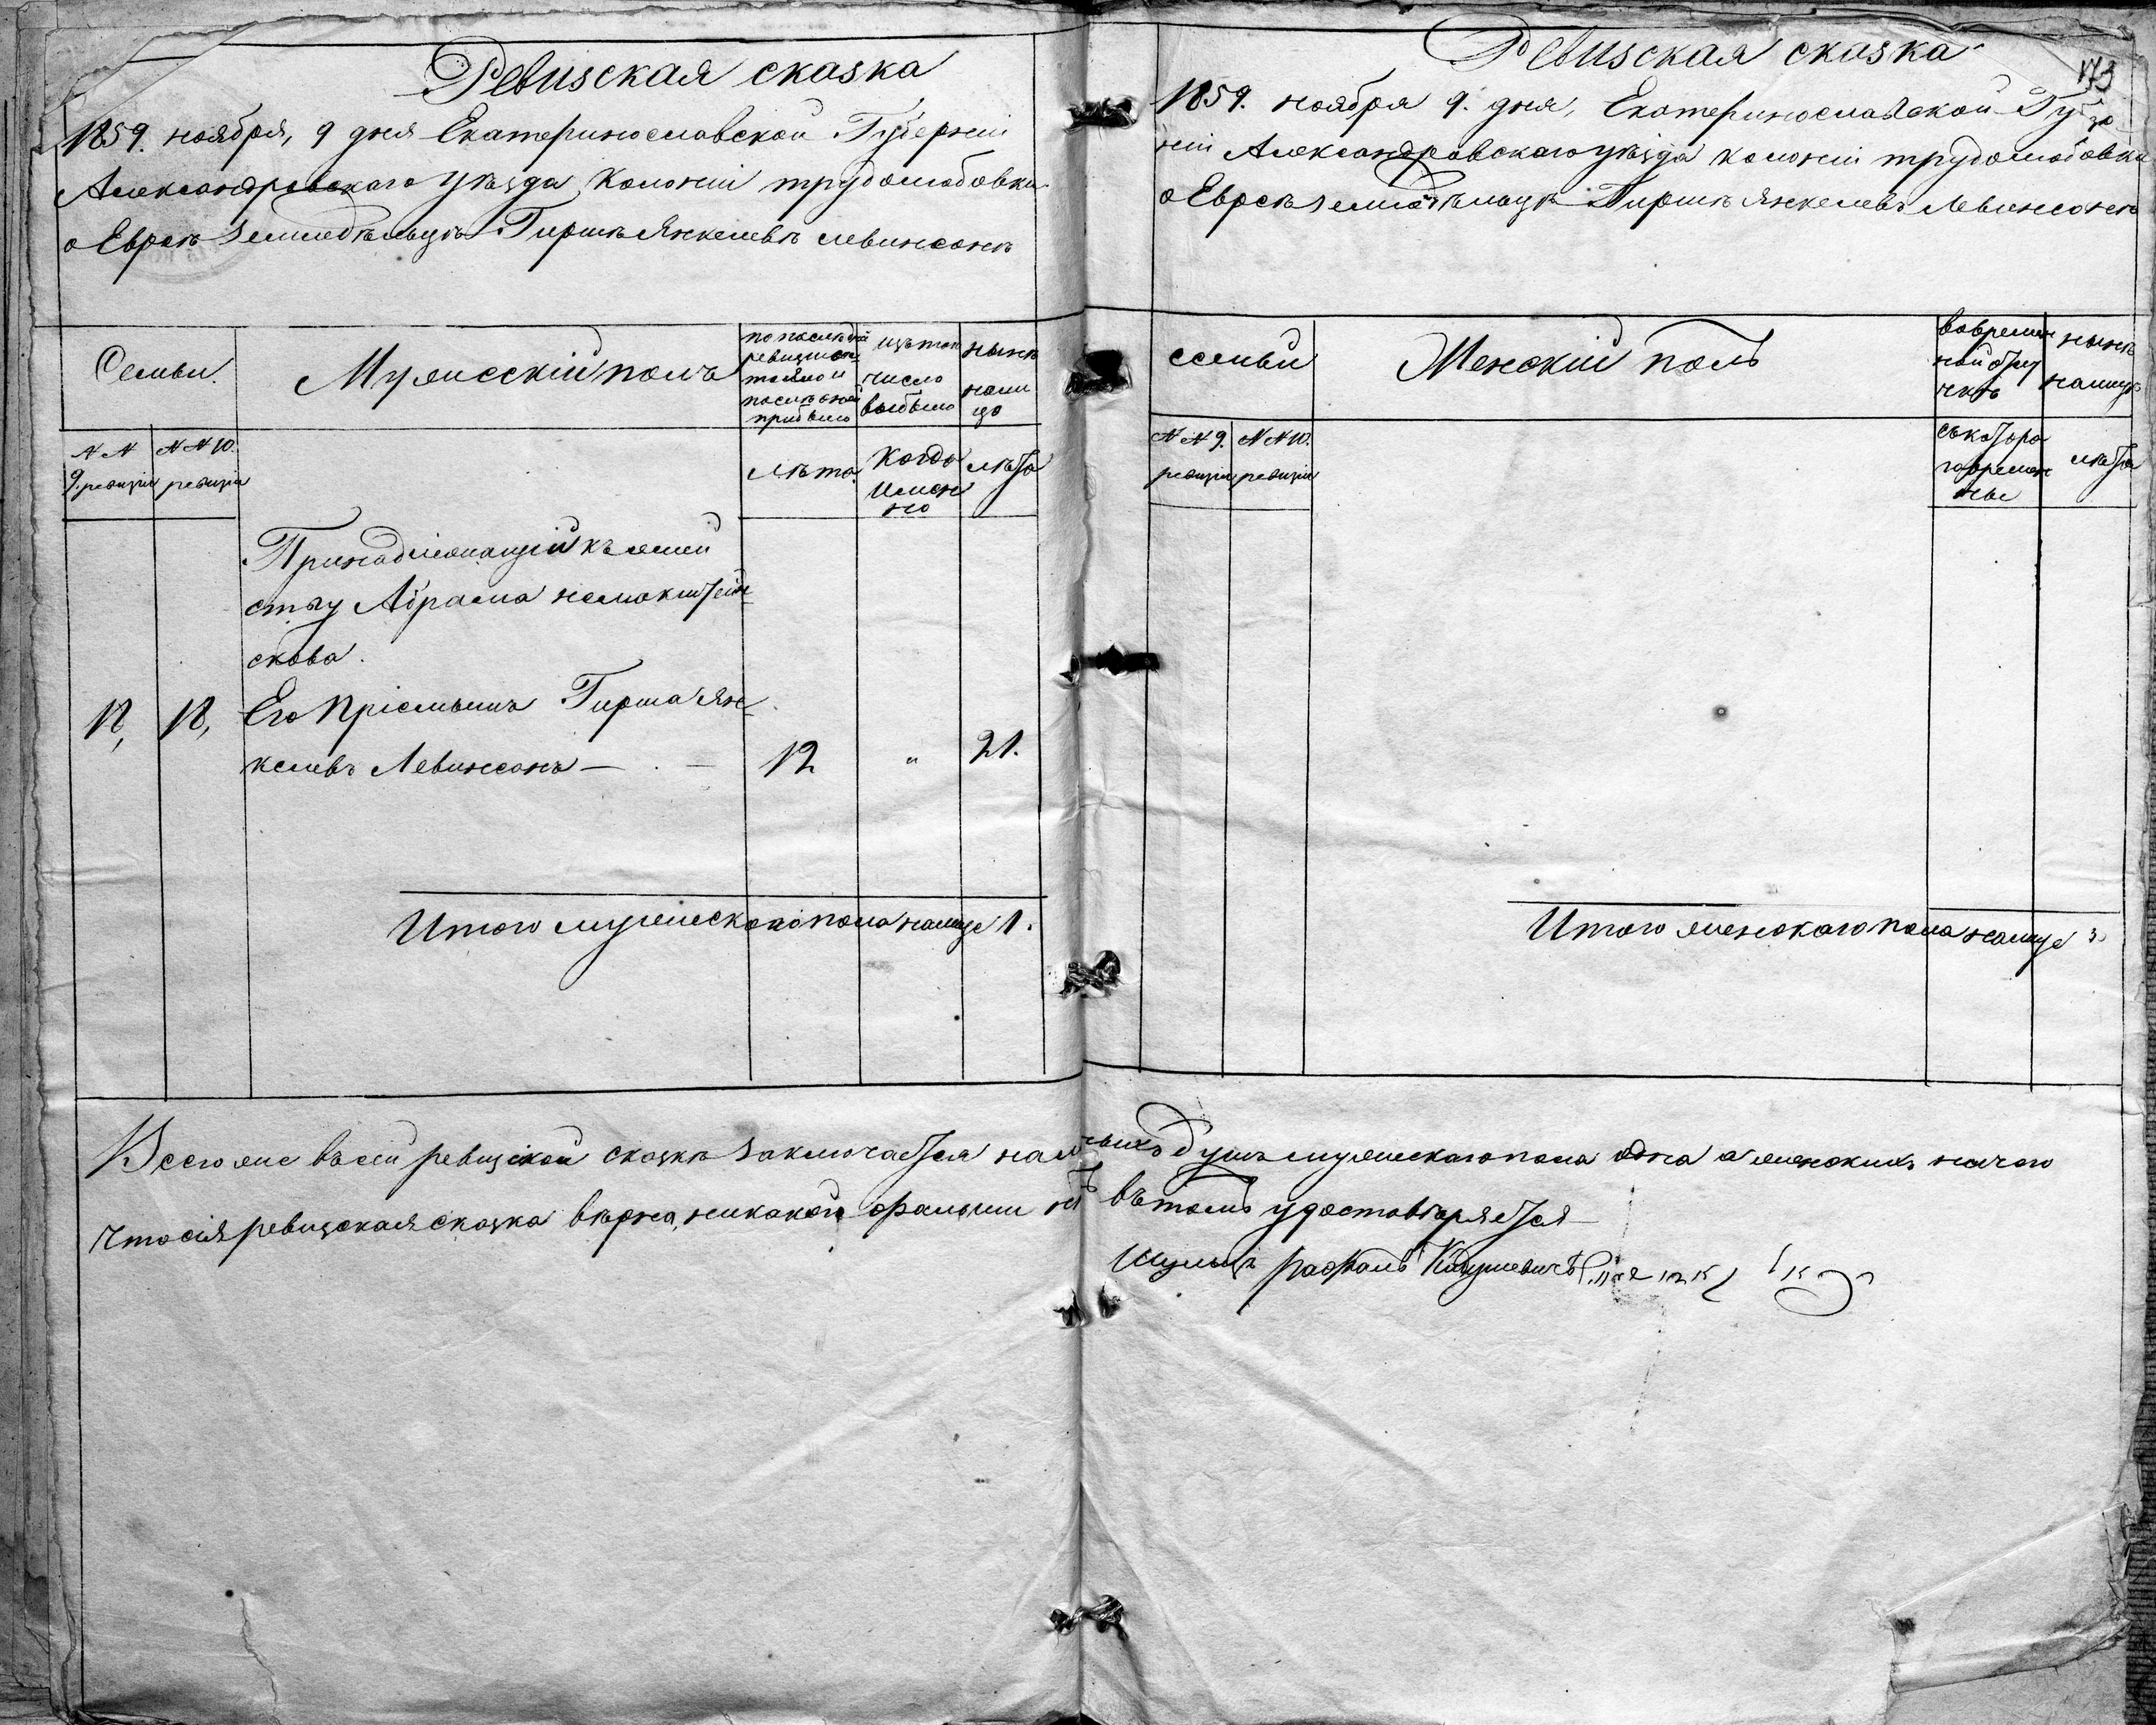 Ревизская сказка
1859. ноября, 9 дня Екатеринославской Губерніи
Александровскаго уѣзда Колоніи трудолюбовки
о Евреѣ Земледѣльцѣ Гиршѣ Янкелевѣ Левинсонѣ
Семьи.
Мужескій полъ
по послѣдней
ревизіи
состояло и
послѣ оной
прибыло
изъ того
число
выбыло
нынѣ
нали
цо
№ №
9. ревизіи
№ № 10.
ревизіи
лѣта.
Когда
имен
но
лѣта
Принадлежащій къ семей
ству Абрама
скова.
18, 18, Его Пріемышъ Гирша Ян-
келевъ Левинсонъ — . — 12 " 21.
Итого мужескаго пола налице 1.
Ревизская сказка
173
1859. ноября 9. дня, Екатеринославской Губер
ніи Александровскаго уѣзда колоніи трудолюбовки
о Евреѣ земледѣльцѣ Гиршѣ Янкелевѣ Левинсонѣ
семьи
Женскій полъ
во времен
ной отлу
чкѣ
нынѣ
налицо
№ № 9.
ревизіи
№ № 10.
ревизіи
съ котора
го времен
ны
лѣта
Итого женскаго пола налице
Всего же въ сей ревизской сказкѣ заключается наличныхъ душъ мужескаго пола одна а женскихъ ничего
что сія ревизская сказка вѣрна, никакой фальши нѣтъ въ томъ удостовѣряется
Шульцъ